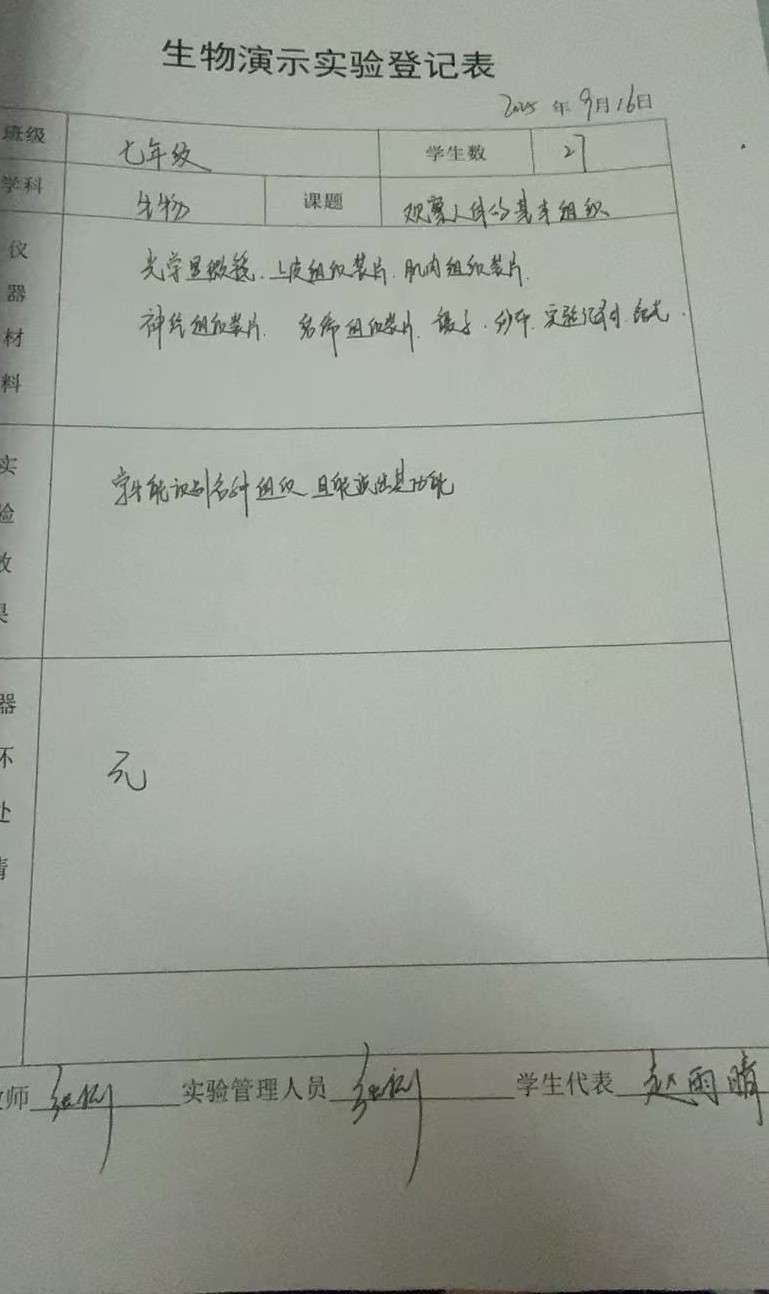 生物演示实验登记表
2025 年 9月16日
班级 七年级 学生数 27
学科 生物 课题 观察人体的基本组织
仪器材料 光学显微镜、上皮组织装片、肌肉组织装片、
神经组织装片、 结缔组织装片、镊子、纱布、实验记录本、铅笔.
实验效果 学生能识别各种组织 且能说出其功能
器 坏 处 情
元
教师 实验管理人员 学生代表 赵雨晴